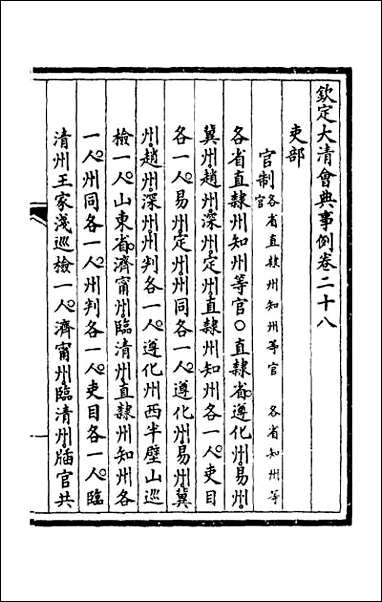 欽定大清會典事例卷二十八
吏部
官制各省直隸州知州等官　各省知州等官
各省直隸州知州等官〇直隸省遵化州易州
冀州趙州深州定州直隸州知州各一人吏目
各一人易州定州州同各一人遵化州易州冀
州趙州深州州判各一人遵化州西半壁山巡
檢一人山東省濟甯州臨清州直隸州知州各
一人州同各一人州判各一人吏目各一人臨
清州王家淺巡檢一人濟甯州臨清州牐官共